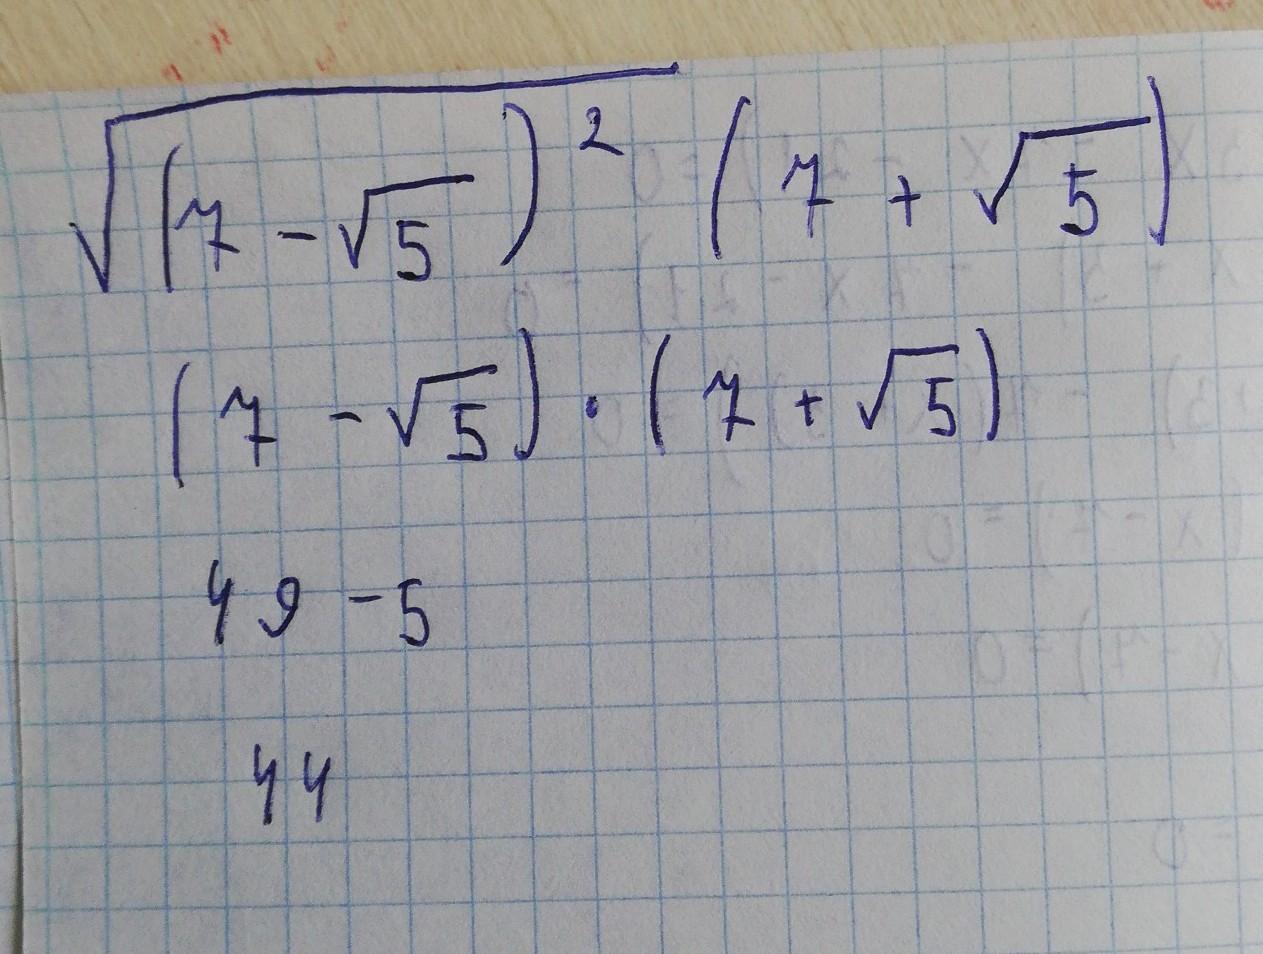 √(7 - √5)² (7 + √5)
(7 - √5) · (7 + √5)
49 - 5
44